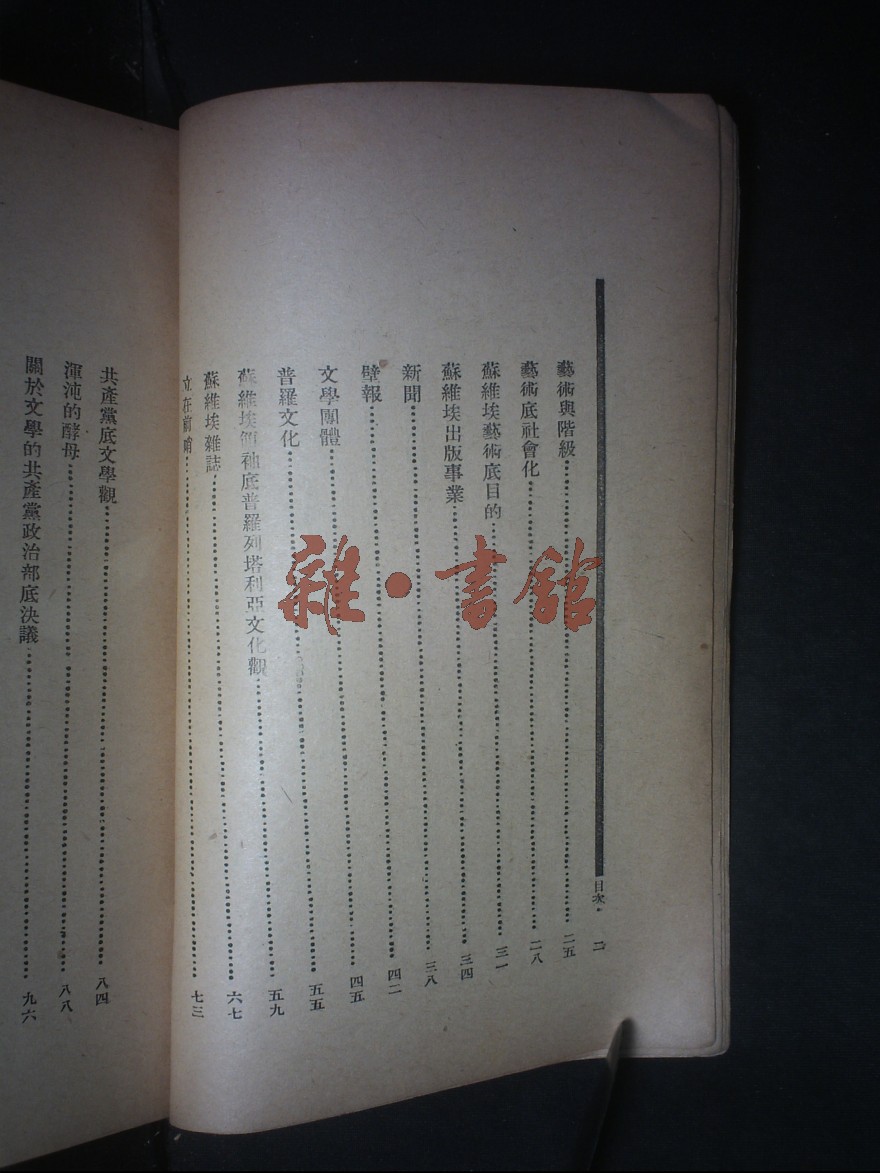 目次 二
藝術與階級……二五
藝術底社會化……二八
蘇維埃藝術底目的……三一
蘇維埃出版事業……三四
新聞……三八
壁報……四二
文學團體……四五
普羅文化……五五
蘇維埃領袖底普羅列塔利亞文化觀……五九
蘇維埃雜誌……六七
立在前哨……七三
共產黨底文學觀……八四
渾沌的酵母……八八
關於文學的共產黨政治部底決議……九六
雜·書館